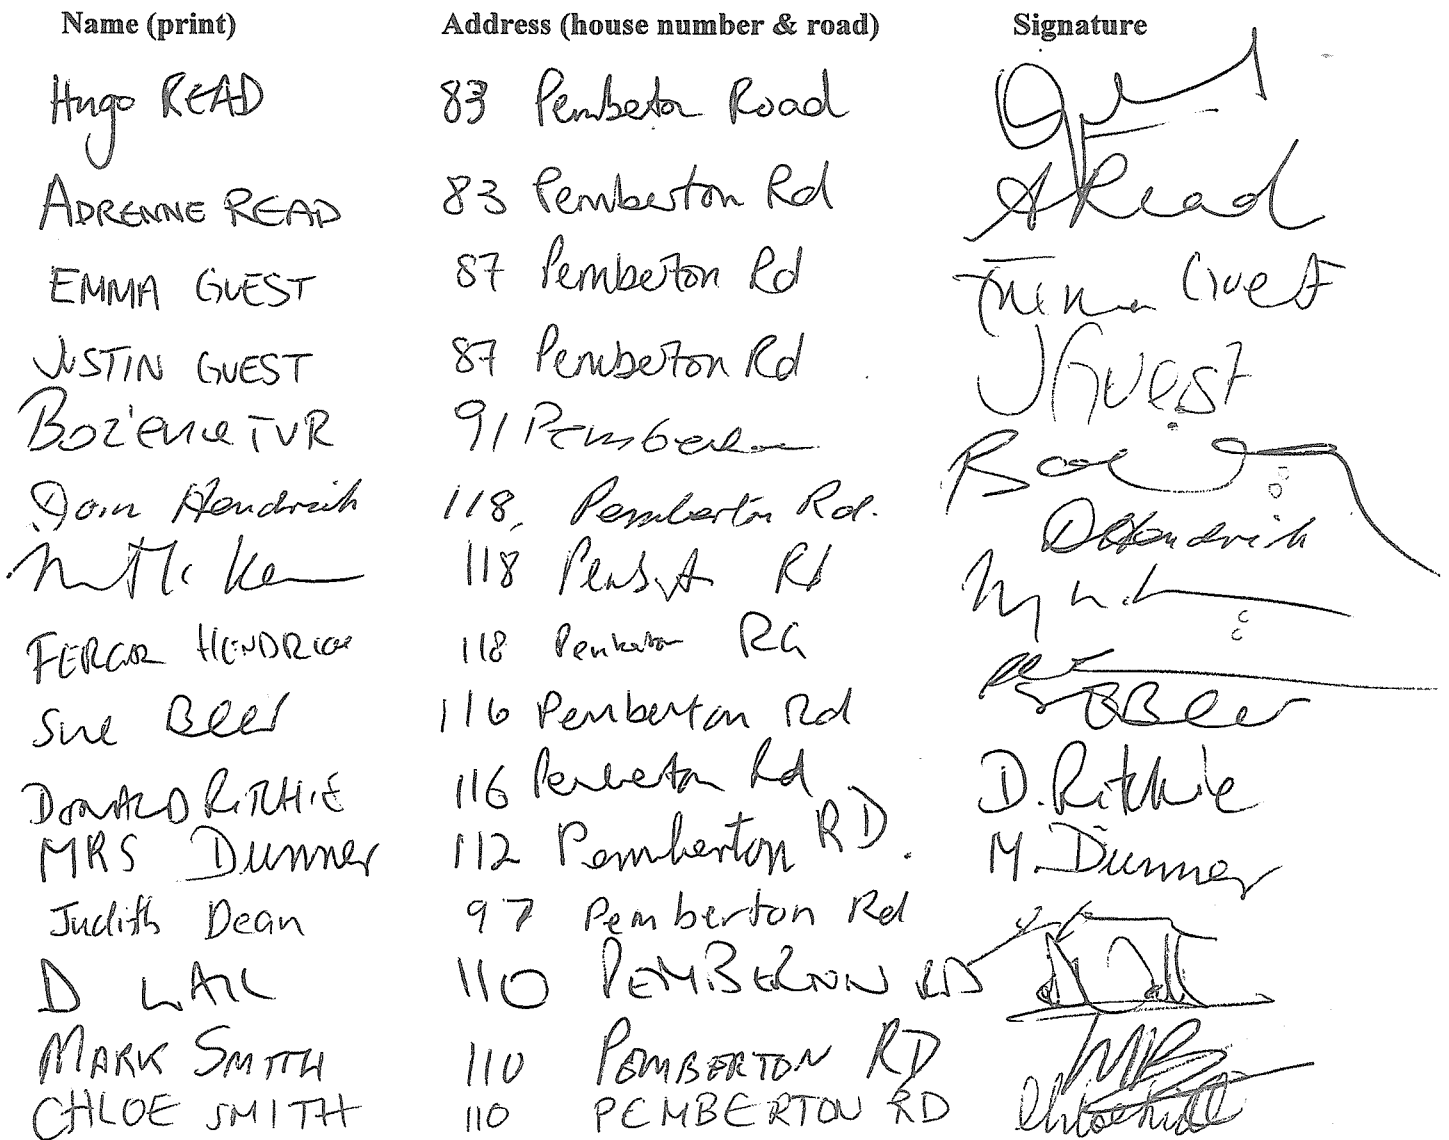 Name (print) Address (house number & road) Signature
Hugo READ 83 Pemberton Road
ADRENNE READ 83 Pemberton Rd A Read
EMMA GUEST 87 Pemberton Rd Emma Guest
JUSTIN GUEST 87 Pemberton Rd J Guest
TUR 91 Pemberton
Hendrich 118, Pemberton Rd. D Hendrich
118 Rd
HENDRICH 118 Pemberton Rd
Sue Beer 116 Pemberton Rd Beer
DONALD RITCHIE 116 Pemberton Rd D. Ritchie
MRS Dunner 112 Pemberton RD. M. Dunner
Judith Dean 97 Pemberton Rd
D 110 PEMBERTON RD
MARK SMITH 110 PEMBERTON RD
CHLOE SMITH 110 PEMBERTON RD